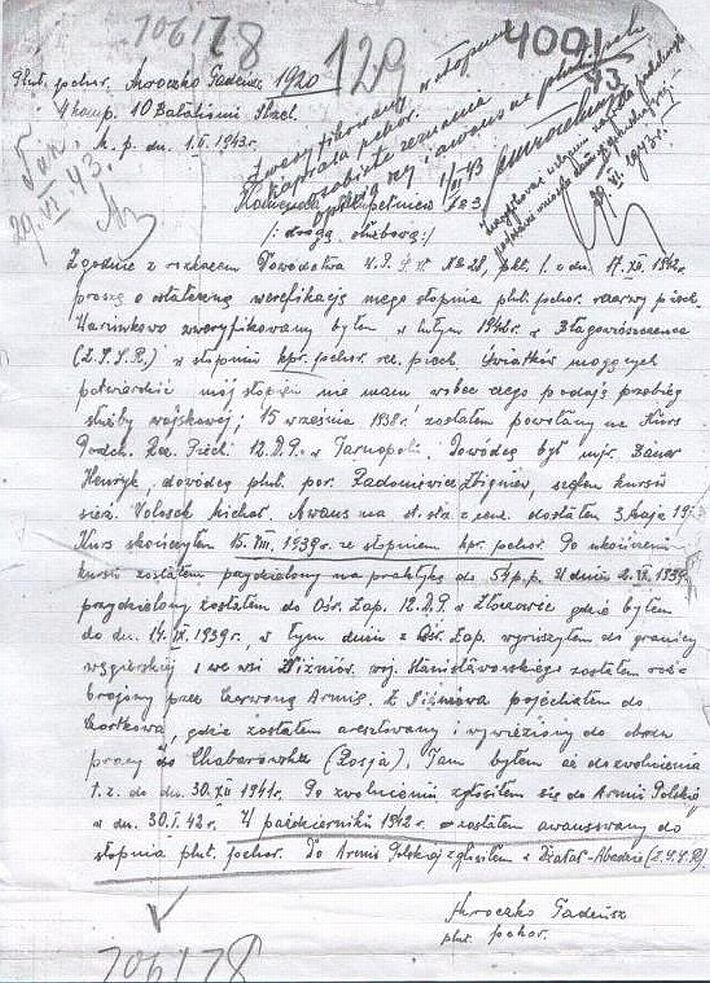 706178
129
4001
43
Plut. pchor. Mroczko Tadeusz 1920
4 komp. 10 Bataljonu Strzel.
M. p. dn. 1.II.1943r.
29.VI.43.
Zweryfikowany w stopniu
kaprala pchor.
osobiste zeznania
i awans na plut. pchor.
1/III 43
29.VI.1943 r.
Komenda Uzupełnień No 3
/: drogą służbową :/
Zgodnie z rozkazem Dowództwa A.P. No 28, pkt. 1. z dn. 17.XII.1942r.
proszę o ostateczną weryfikację mego stopnia plut. pchor. rezerwy piech.
Warunkowo zweryfikowany byłem w lutym 1942r. w Błagowieszczence
(Z.S.S.R.) w stopniu kpr. pchor. rez. piech. Świadków mogących
potwierdzić mój stopień nie mam wobec czego podaję przebieg
służby wojskowej; 15 września 1938r. zostałem powołany na Kurs
Podch. Rez. Piech. 12.D.P. w Tarnopolu. Dowódcą był mjr. Bauer
Henryk, dowódcą plut. por. Radoniewicz Zbigniew, szefem kursu
sierż. Wołosek Michał. Awans na st. strz. z cenz. dostałem 3 maja 19
Kurs skończyłem 15.VIII.1939r. ze stopniem kpr. pchor. Po ukończeniu
kursu zostałem przydzielony na praktykę do 54 p.p. W dniu 2.IX.1939r.
przydzielony zostałem do Ośr. Zap. 12.D.P. w Złoczowie gdzie byłem
do dn. 14.IX.1939r., w tym dniu z Ośr. Zap. wyruszyłem do granicy
węgierskiej i we wsi Niżniów. woj. Stanisławowskiego zostałem roz-
brojony przez Czerwoną Armię. Z Niżniowa pojechałem do
Czortkowa, gdzie zostałem aresztowany i wywieziony do obozu
pracy do Chabarowska (Rosja). Tam byłem aż do zwolnienia
t.z. do dn. 30.XII 1941r. Po zwolnieniu zgłosiłem się do Armii Polskiej
w dn. 30.I.42r. W październiku 1942r. zostałem awansowany do
stopnia plut. pchor. Do Armii Polskiej zgłosiłem w Dżałał-Abadzie (Z.S.S.R).
Mroczko Tadeusz
plut. pchor.
706178